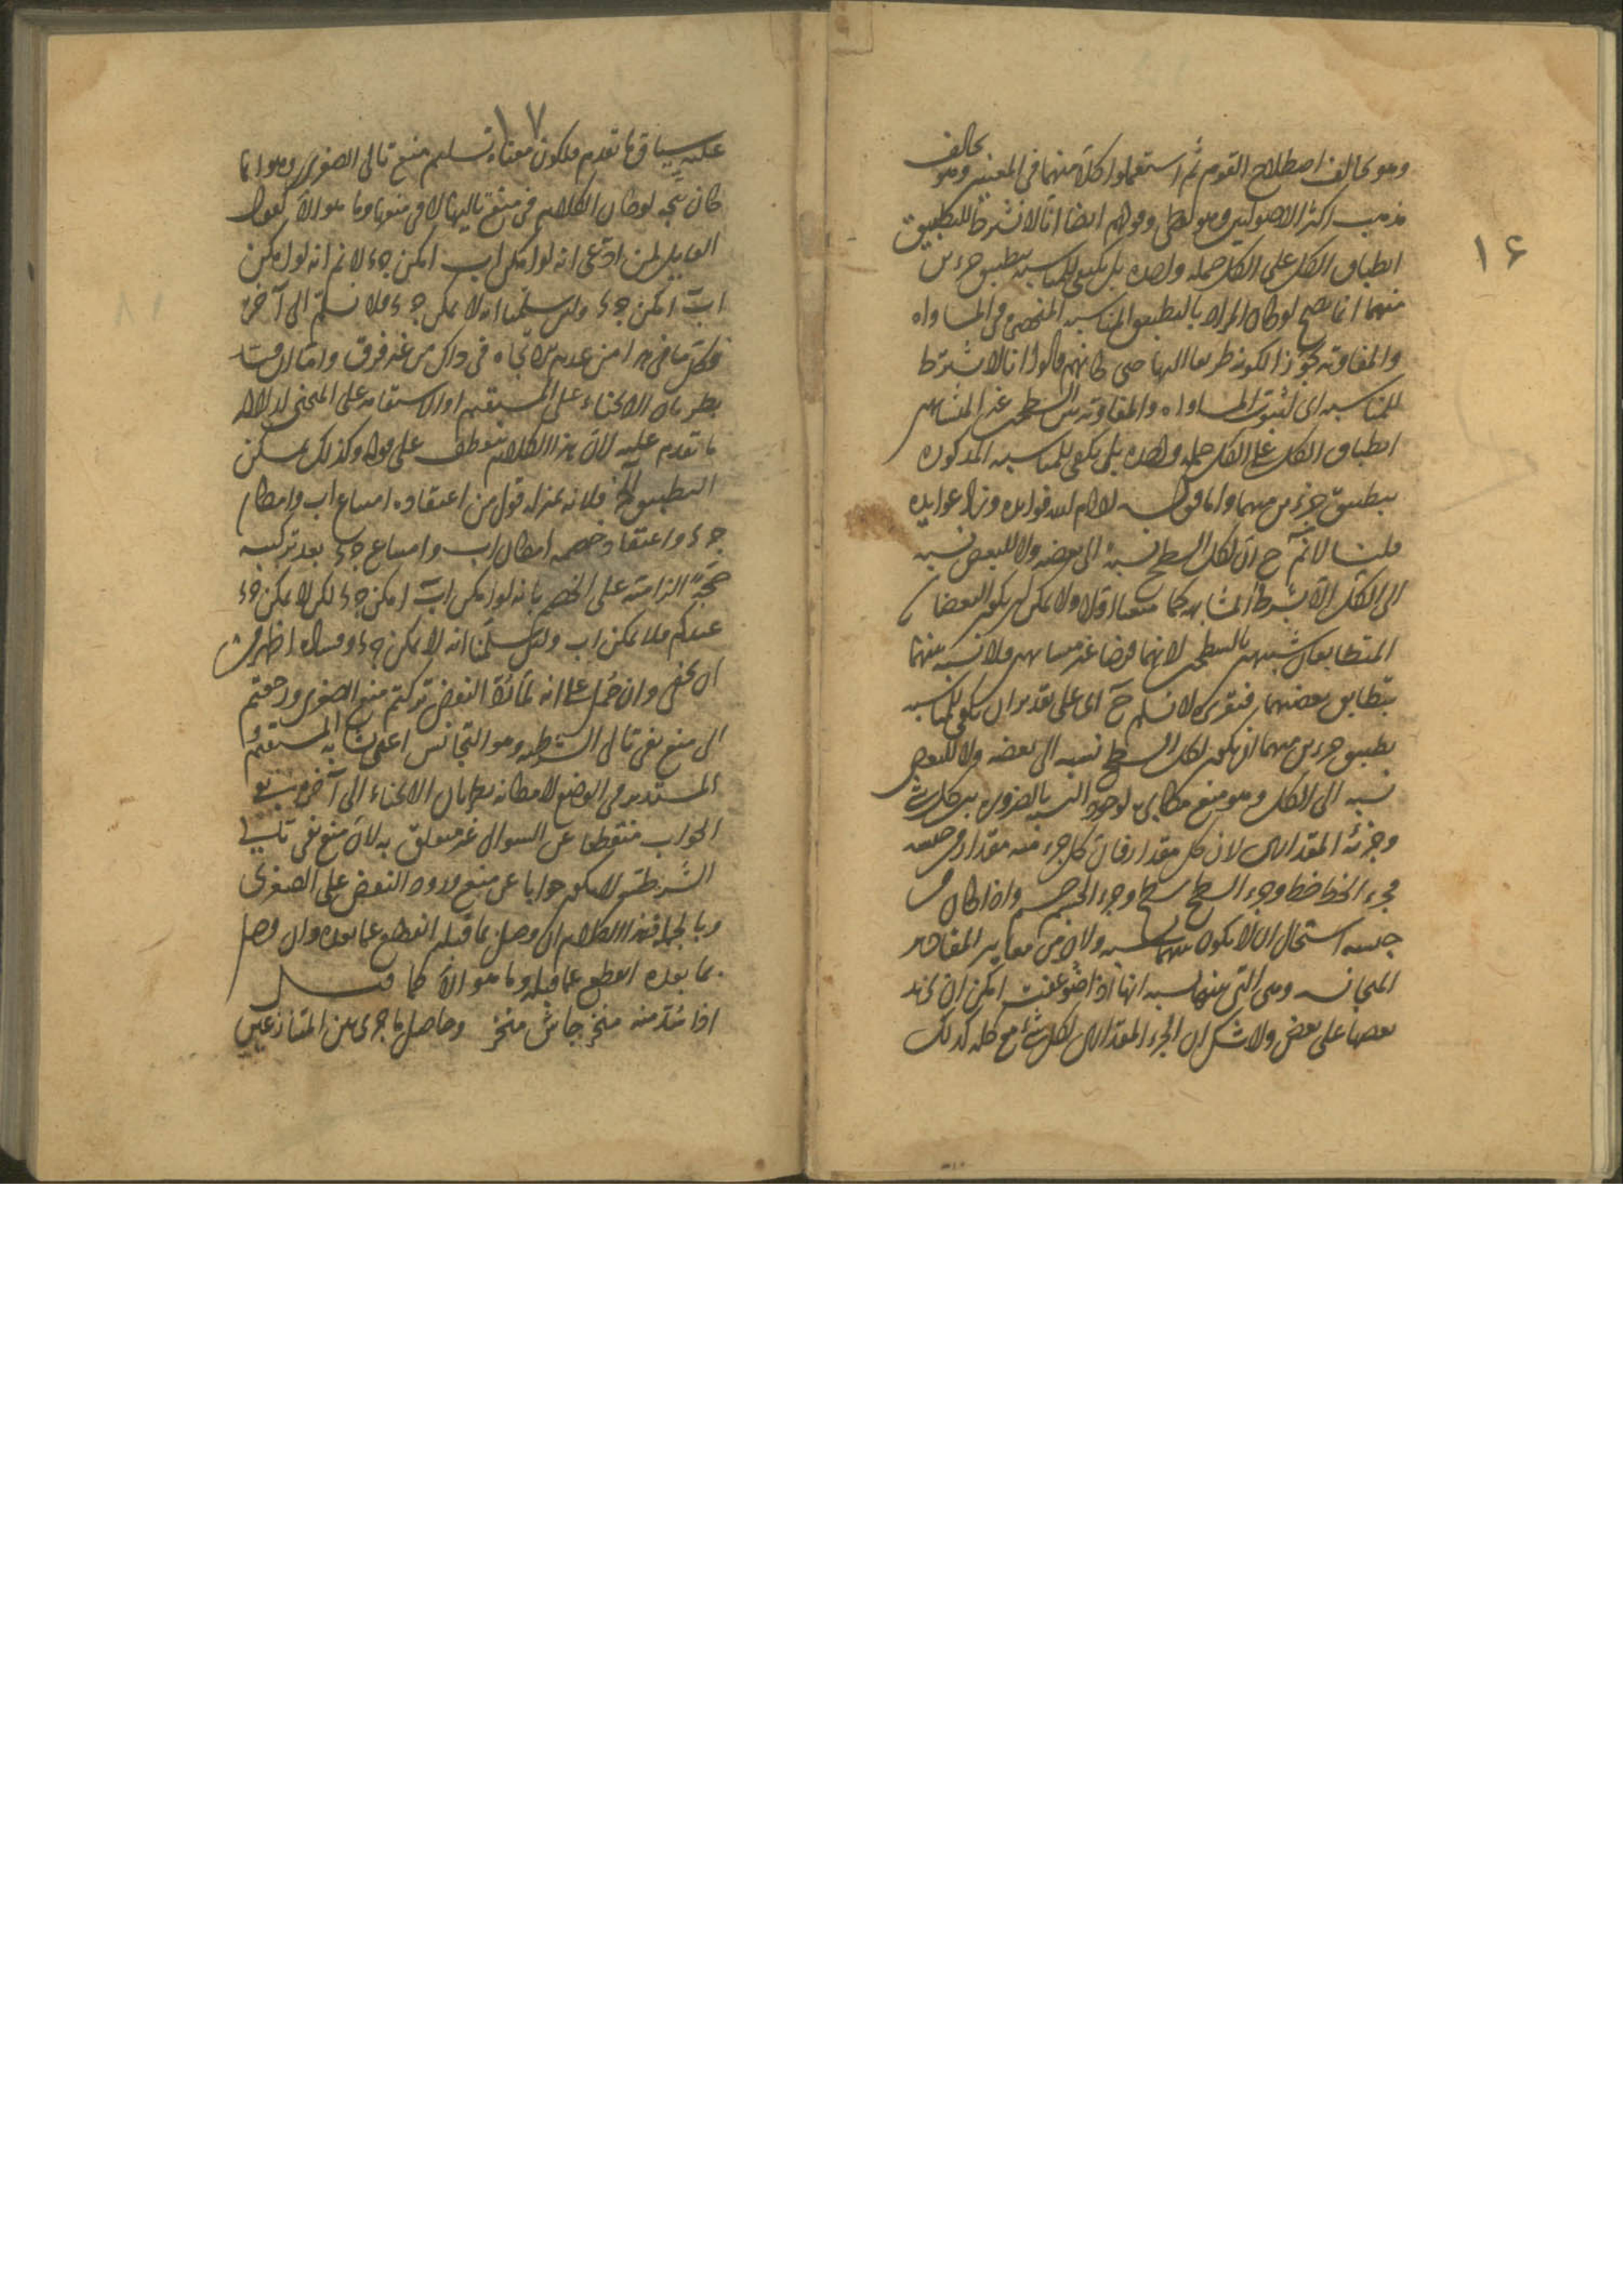 ١٦
وهو يخالف اصطلاح القوم ثم استعملوا كلا منهما في المعنيين وهو يخالف
مذهب اكثر الاصوليين وهو وقولهم ايضا انا لا نشترط للتطبيق
انطباق الكل على الكل جملة واحدة بل يكفى للمناسبة تطبيق جزءين
منهما انما يصح لو كان المراد بالتطبيق المناسبة المنحصرة في المساواة
والمفاوتة تجوزا لكونه طريقا اليها حتى كانهم قالوا انا لا نشترط
للمناسبة اى لثبوت المساواة والمفاوتة بين السطحين غير المتشابهين
انطباق الكل على الكل جملة واحدة بل يكفى للمناسبة المذكورة
تطبيق جزءين منهما واما قوله ادام الله فوايده وزاد عوايده
قلنا لا نم ح ان لكل السطح نسبة الى بعضه ولا للبعض نسبة
الى الكل الا بشرط المشابهة كما منعنا اولا ولا يمكن ان يكون البعضان
المتطابقان شبيهين بالسطحين لانهما فرضا غير متشابهين فلا نسبة بينهما
بتطابق بعضيهما فتقريره لا نسلم ح اى على تقدير ان يكفى للمناسبة
تطبيق جزءين منهما ان يكون لكل السطح نسبة الى بعضه ولا للبعض
نسبة الى الكل وهو منع مكابرة لوجود النسبة بالضرورة بين كل شئ
وجزئه المقدارى لان كل مقدار فان كل جزء منه مقدار من جنسه
فجزء الخط خط وجزء السطح سطح وجزء الجسم جسم واذا كان من
جنسه استحال ان لا يكون بينهما نسبة ولان من مقادير
المتجانسة وهى التى بينها نسبة انها اذا ضوعفت امكن ان يزيد
بعضها على بعض ولا شك ان الجزء المقدارى لكل شئ مع كله كذلك
١٧
عليه سياق ما تقدم فيكون معناه تسليم منع تالى الصغرى وهو انما
كان يتجه لو كان الكلام في منع تاليها لا في منعها وما هو الا كقول
القايل لمن ادعى انه لو امكن اب امكن جء لا نم انه لو امكن
اب امكن جء ولئن سلمنا انه لا يمكن جء فلا نسلم الى آخره
فكل ما في هذا من عدم الاتجاه في ذاك من غير فرق واما ان قيد
بطريان الانحناء على المستقيم او الاستقامة على المنحنى لدلالة
ما تقدم عليه لان هذا الكلام منعطف على قوله وكذلك يمكن
التطبيق الخ فلانه بمنزلة قول من اعتقاده امتناع اب وامكان
جء واعتقاد خصمه امكان اب وامتناع جء بعد تركيبه
حجة الزامية على الخصم بانه لو امكن اب امكن جء لكن لا يمكن جء
عندكم فلا يمكن اب ولئن سلمنا انه لا يمكن جء وفساده اظهر من
ان يخفى وان حمل على انه لما تم النقض تركتم منع الصغرى ورجعتم
الى منع نفى تالى الشرطية وهو التجانس اعنى تشابه المستقيم
المستدير في الوضع لامكانه بطريان الانحناء الى آخره يبقى
الجواب منقطعا عن السؤال غير متعلق به لان منع نفى تالى
الشرطية لا يكون جوابا عن منع ورود النقض على الصغرى
وبالجملة فهذا الكلام ان وصل بما قبله انقطع عما بعده وان وصل
بما بعده انقطع عما قبله وما هو الا كما قيل
اذا سد منه منخر جاش منخر وحاصل ما جرى بين المتنازعين